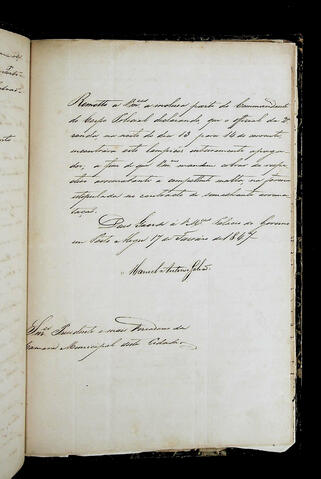 Remetto a Vm.ces a inclusa parte do Commandante
do Corpo Policial declarando, que o official da
ronda na noite de dia 13 para 14 do corrente
encontrara oito lampeões inteiramente apaga-
dos, a fim de que Vm.ces mandem cobrar do respe-
ctivo arrematante a competente multa na forma
estipulada no contracto de semelhante arrema-
tação.
Deos Guarde a V.Mces Palacio do Governo
em Porto Alegre 17 de Janeiro de 1847
Manuel Antonio
Snr.es Presidente e mais Vereadores da
Camara Municipal desta Cidade